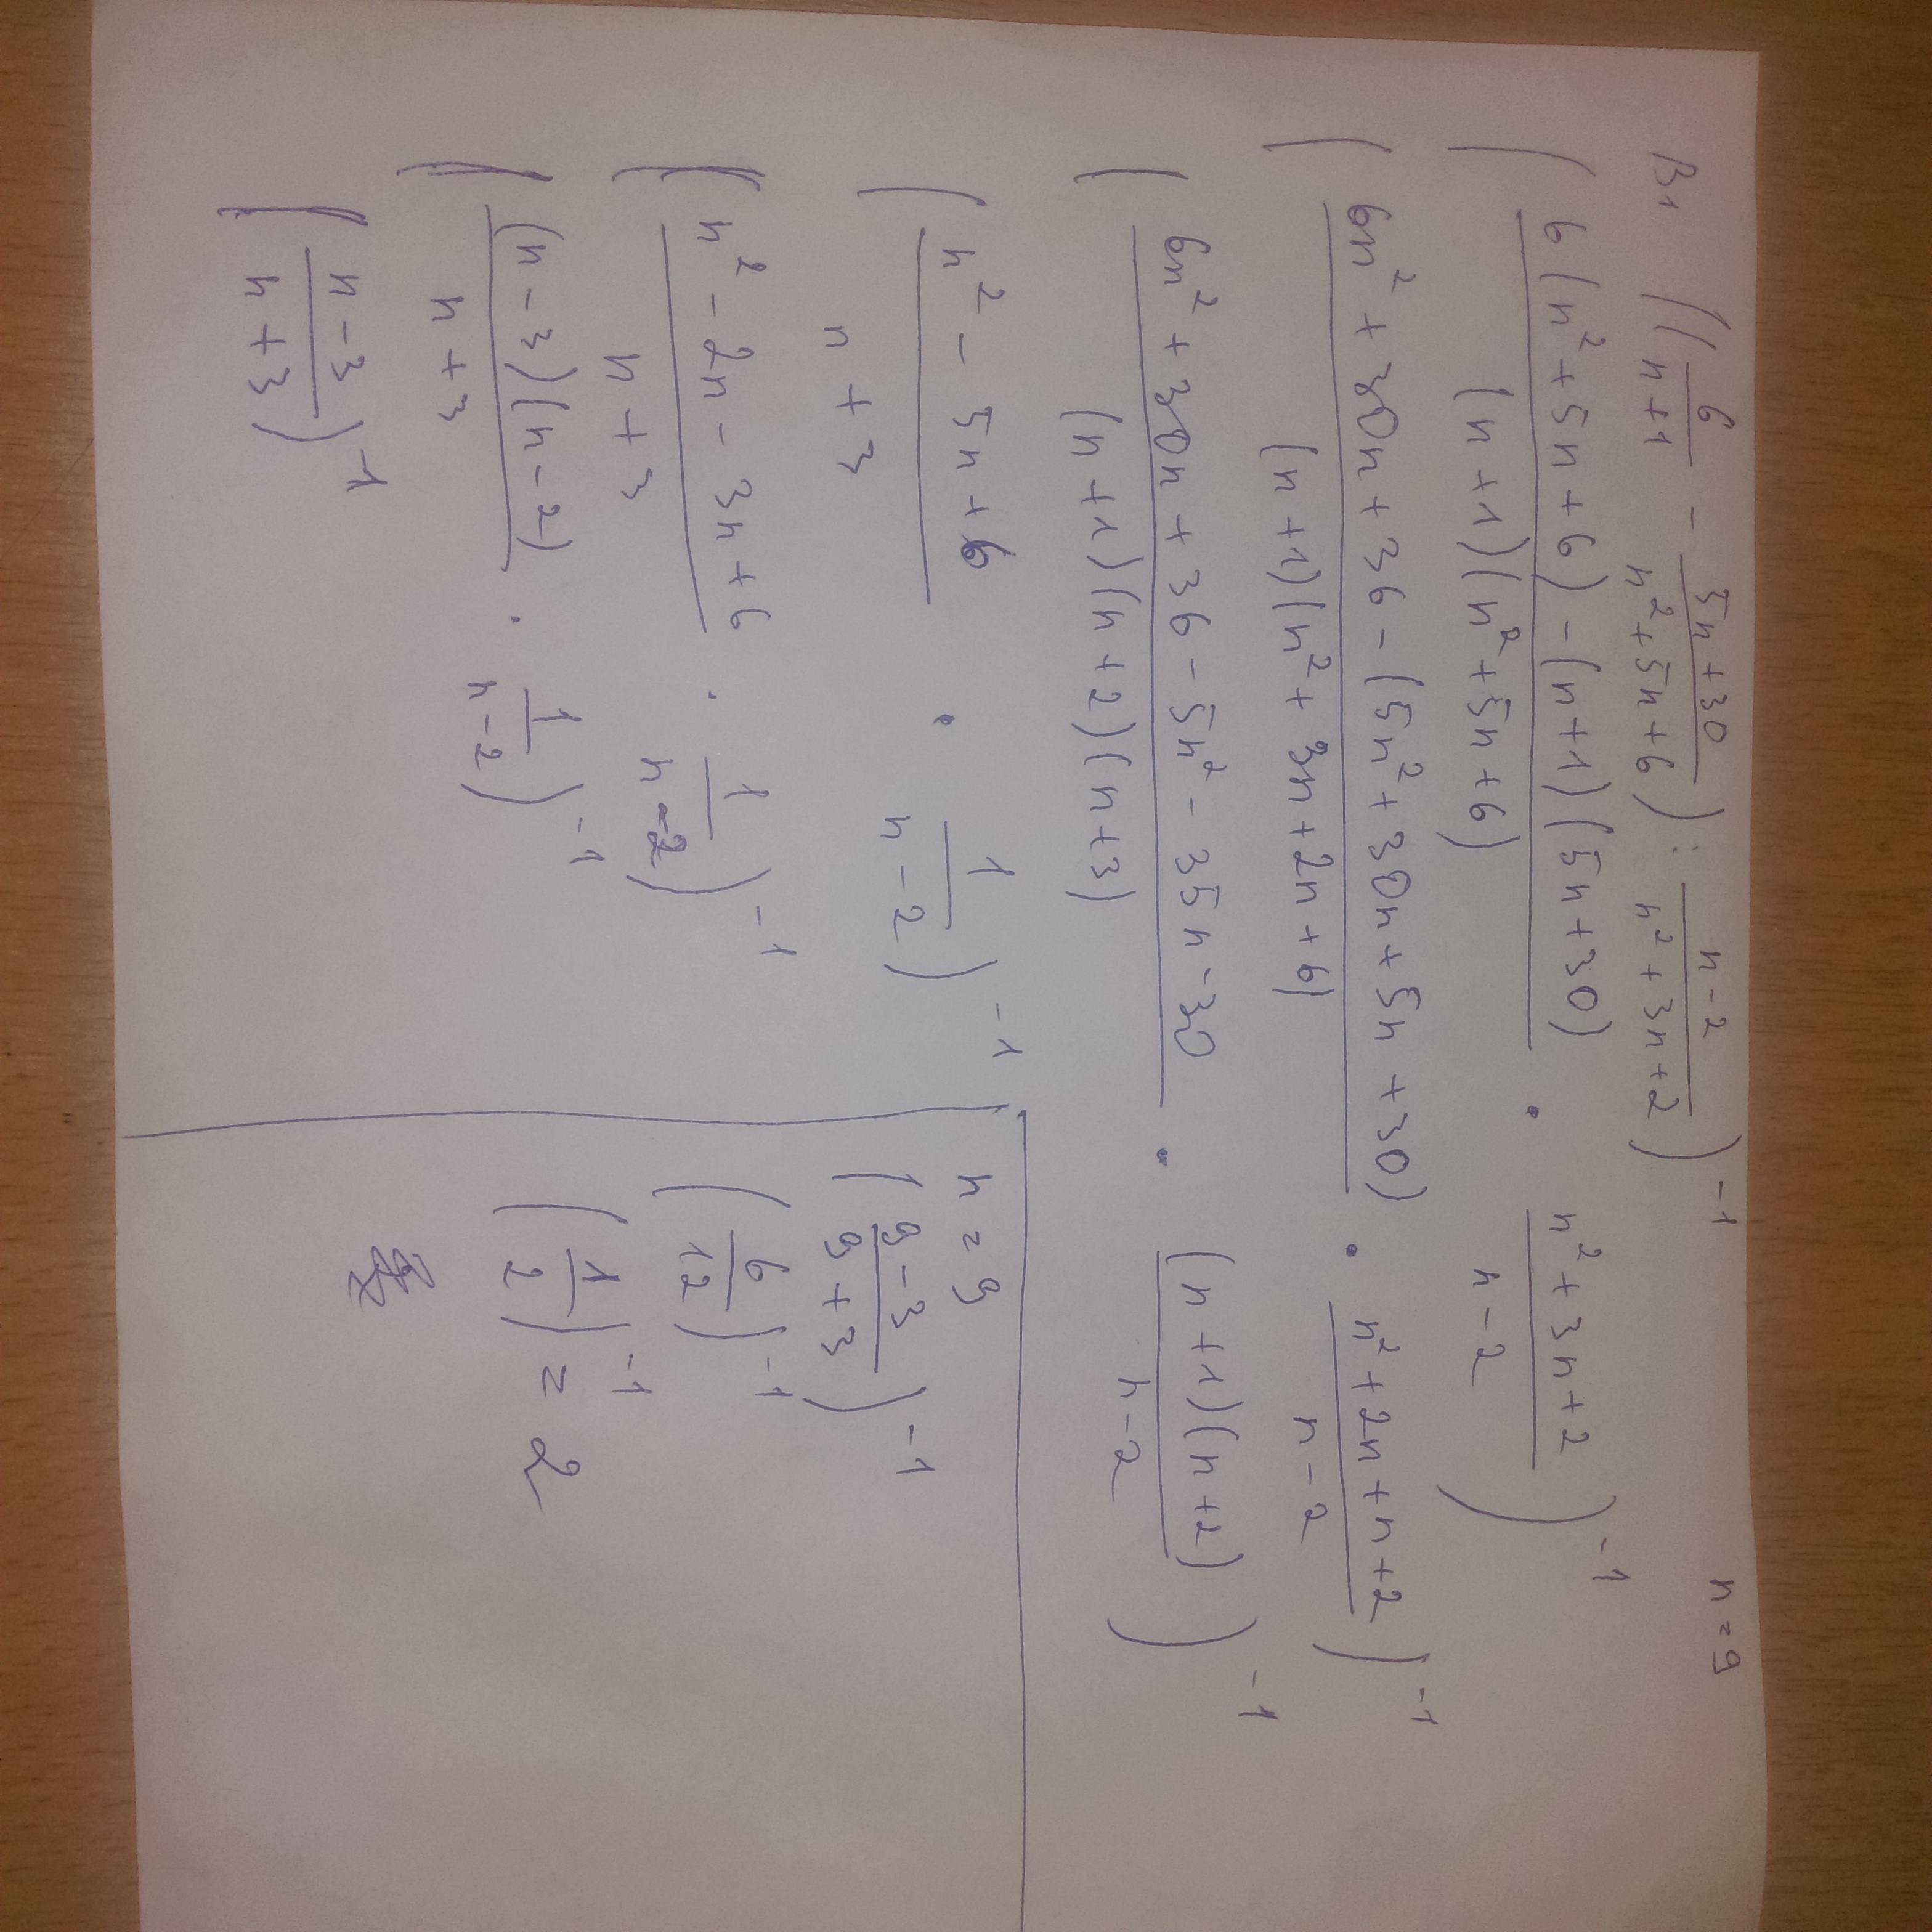 B1 ((6/(n+1) - (5n+30)/(n²+5n+6)) : (n-2)/(n²+3n+2))⁻¹ n=9
((6(n²+5n+6)-(n+1)(5n+30))/((n+1)(n²+5n+6)) · (n²+3n+2)/(n-2))⁻¹
((6n²+30n+36-(5n²+30n+5n+30))/((n+1)(n²+3n+2n+6)) · (n²+2n+n+2)/(n-2))⁻¹
((6n²+30n+36-5n²-35n-30)/((n+1)(n+2)(n+3)) · ((n+1)(n+2))/(n-2))⁻¹
((n²-5n+6)/(n+3) · 1/(n-2))⁻¹
((n²-2n-3n+6)/(n+3) · 1/(n-2))⁻¹
(((n-3)(n-2))/(n+3) · 1/(n-2))⁻¹
((n-3)/(n+3))⁻¹
n=9
((9-3)/(9+3))⁻¹
(6/12)⁻¹
(1/2)⁻¹=2